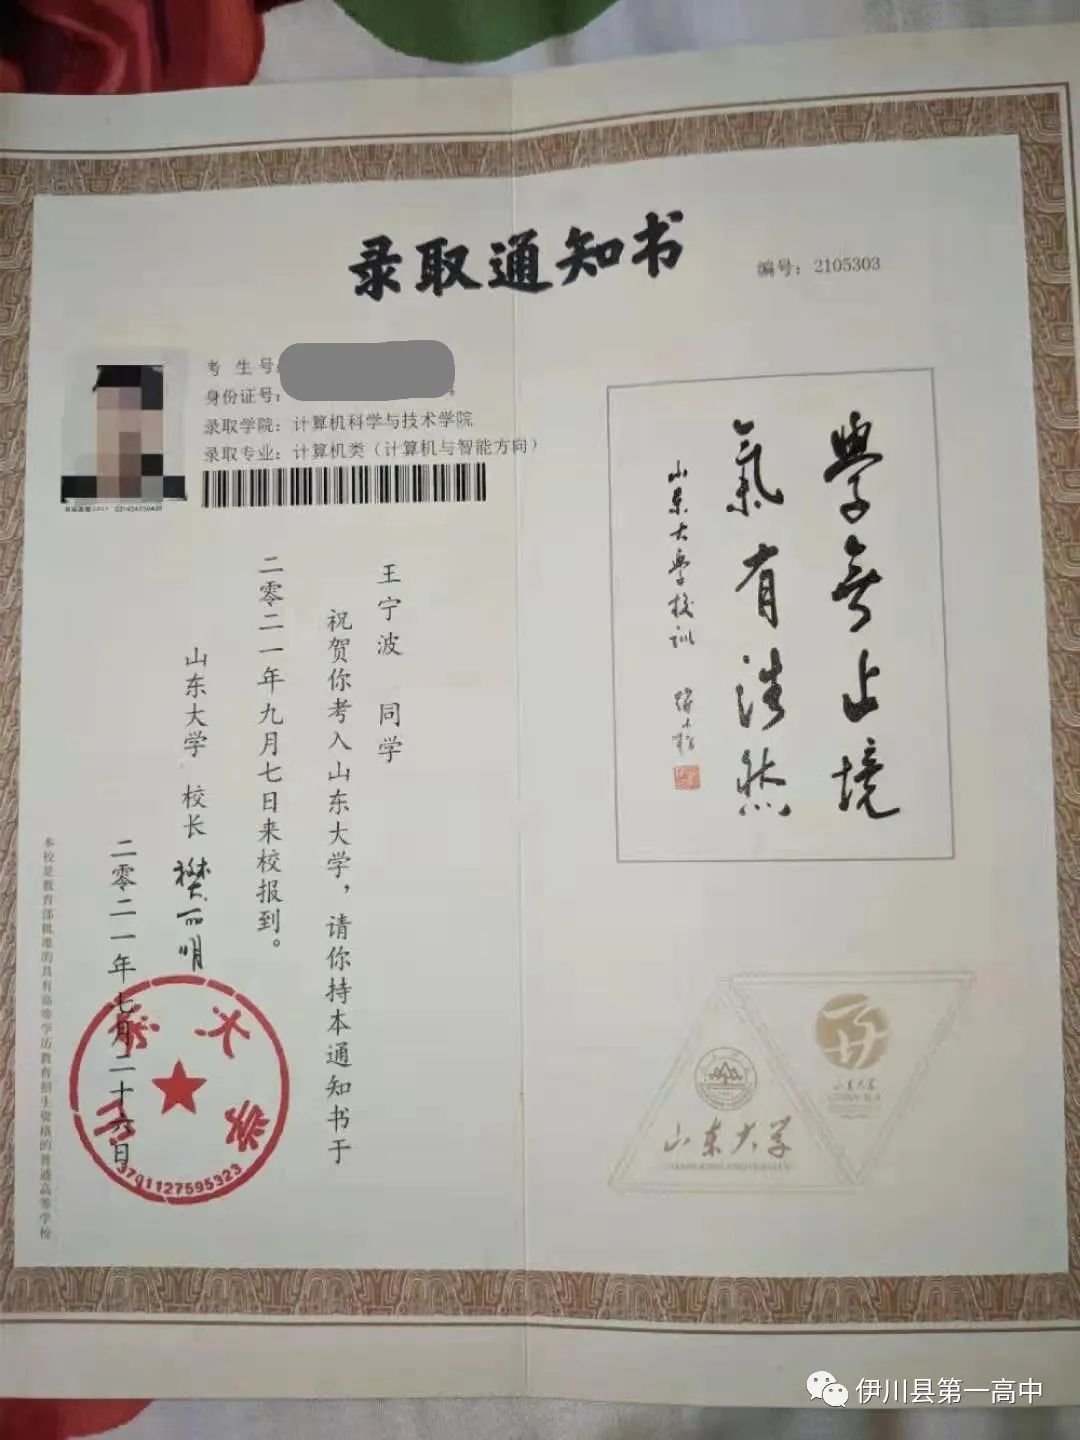 录取通知书
编号：2105303
考生号：
身份证号：
录取学院：计算机科学与技术学院
录取专业：计算机类（计算机与智能方向）
王宁波 同学
祝贺你考入山东大学，请你持本通知书于
二零二一年九月七日来校报到。
山东大学 校长 樊丽明
二零二一年七月二十六日
本校是教育部批准的具有高等学历教育招生资格的普通高等学校
山东大学
3701127595323
學無止境
氣有浩然
山东大学校训
山东大学
山东大学
伊川县第一高中